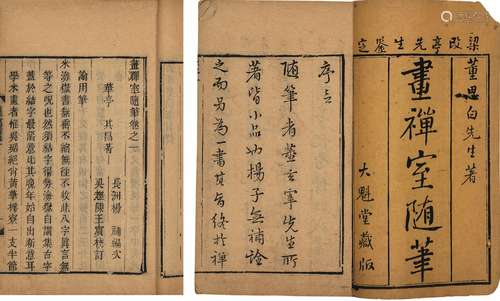 梁改亭先生鉴定
董思白先生著
畫禪室随筆
大魁堂藏版
序言
随筆者董玄宰先生所
著皆小品如揚子無補詮
之而另為一書
畫禪室隨筆卷之一
華亭 其昌著
長洲楊 補編次
論用筆
米海嶽書無垂不縮無往不收此八字真言無
等等之咒也然須結字得勢海嶽自謂集古字
蓋於結字最留意比其晚年始自出新意耳
學米書者惟吳琚絕肖黄華樗寮一支半節